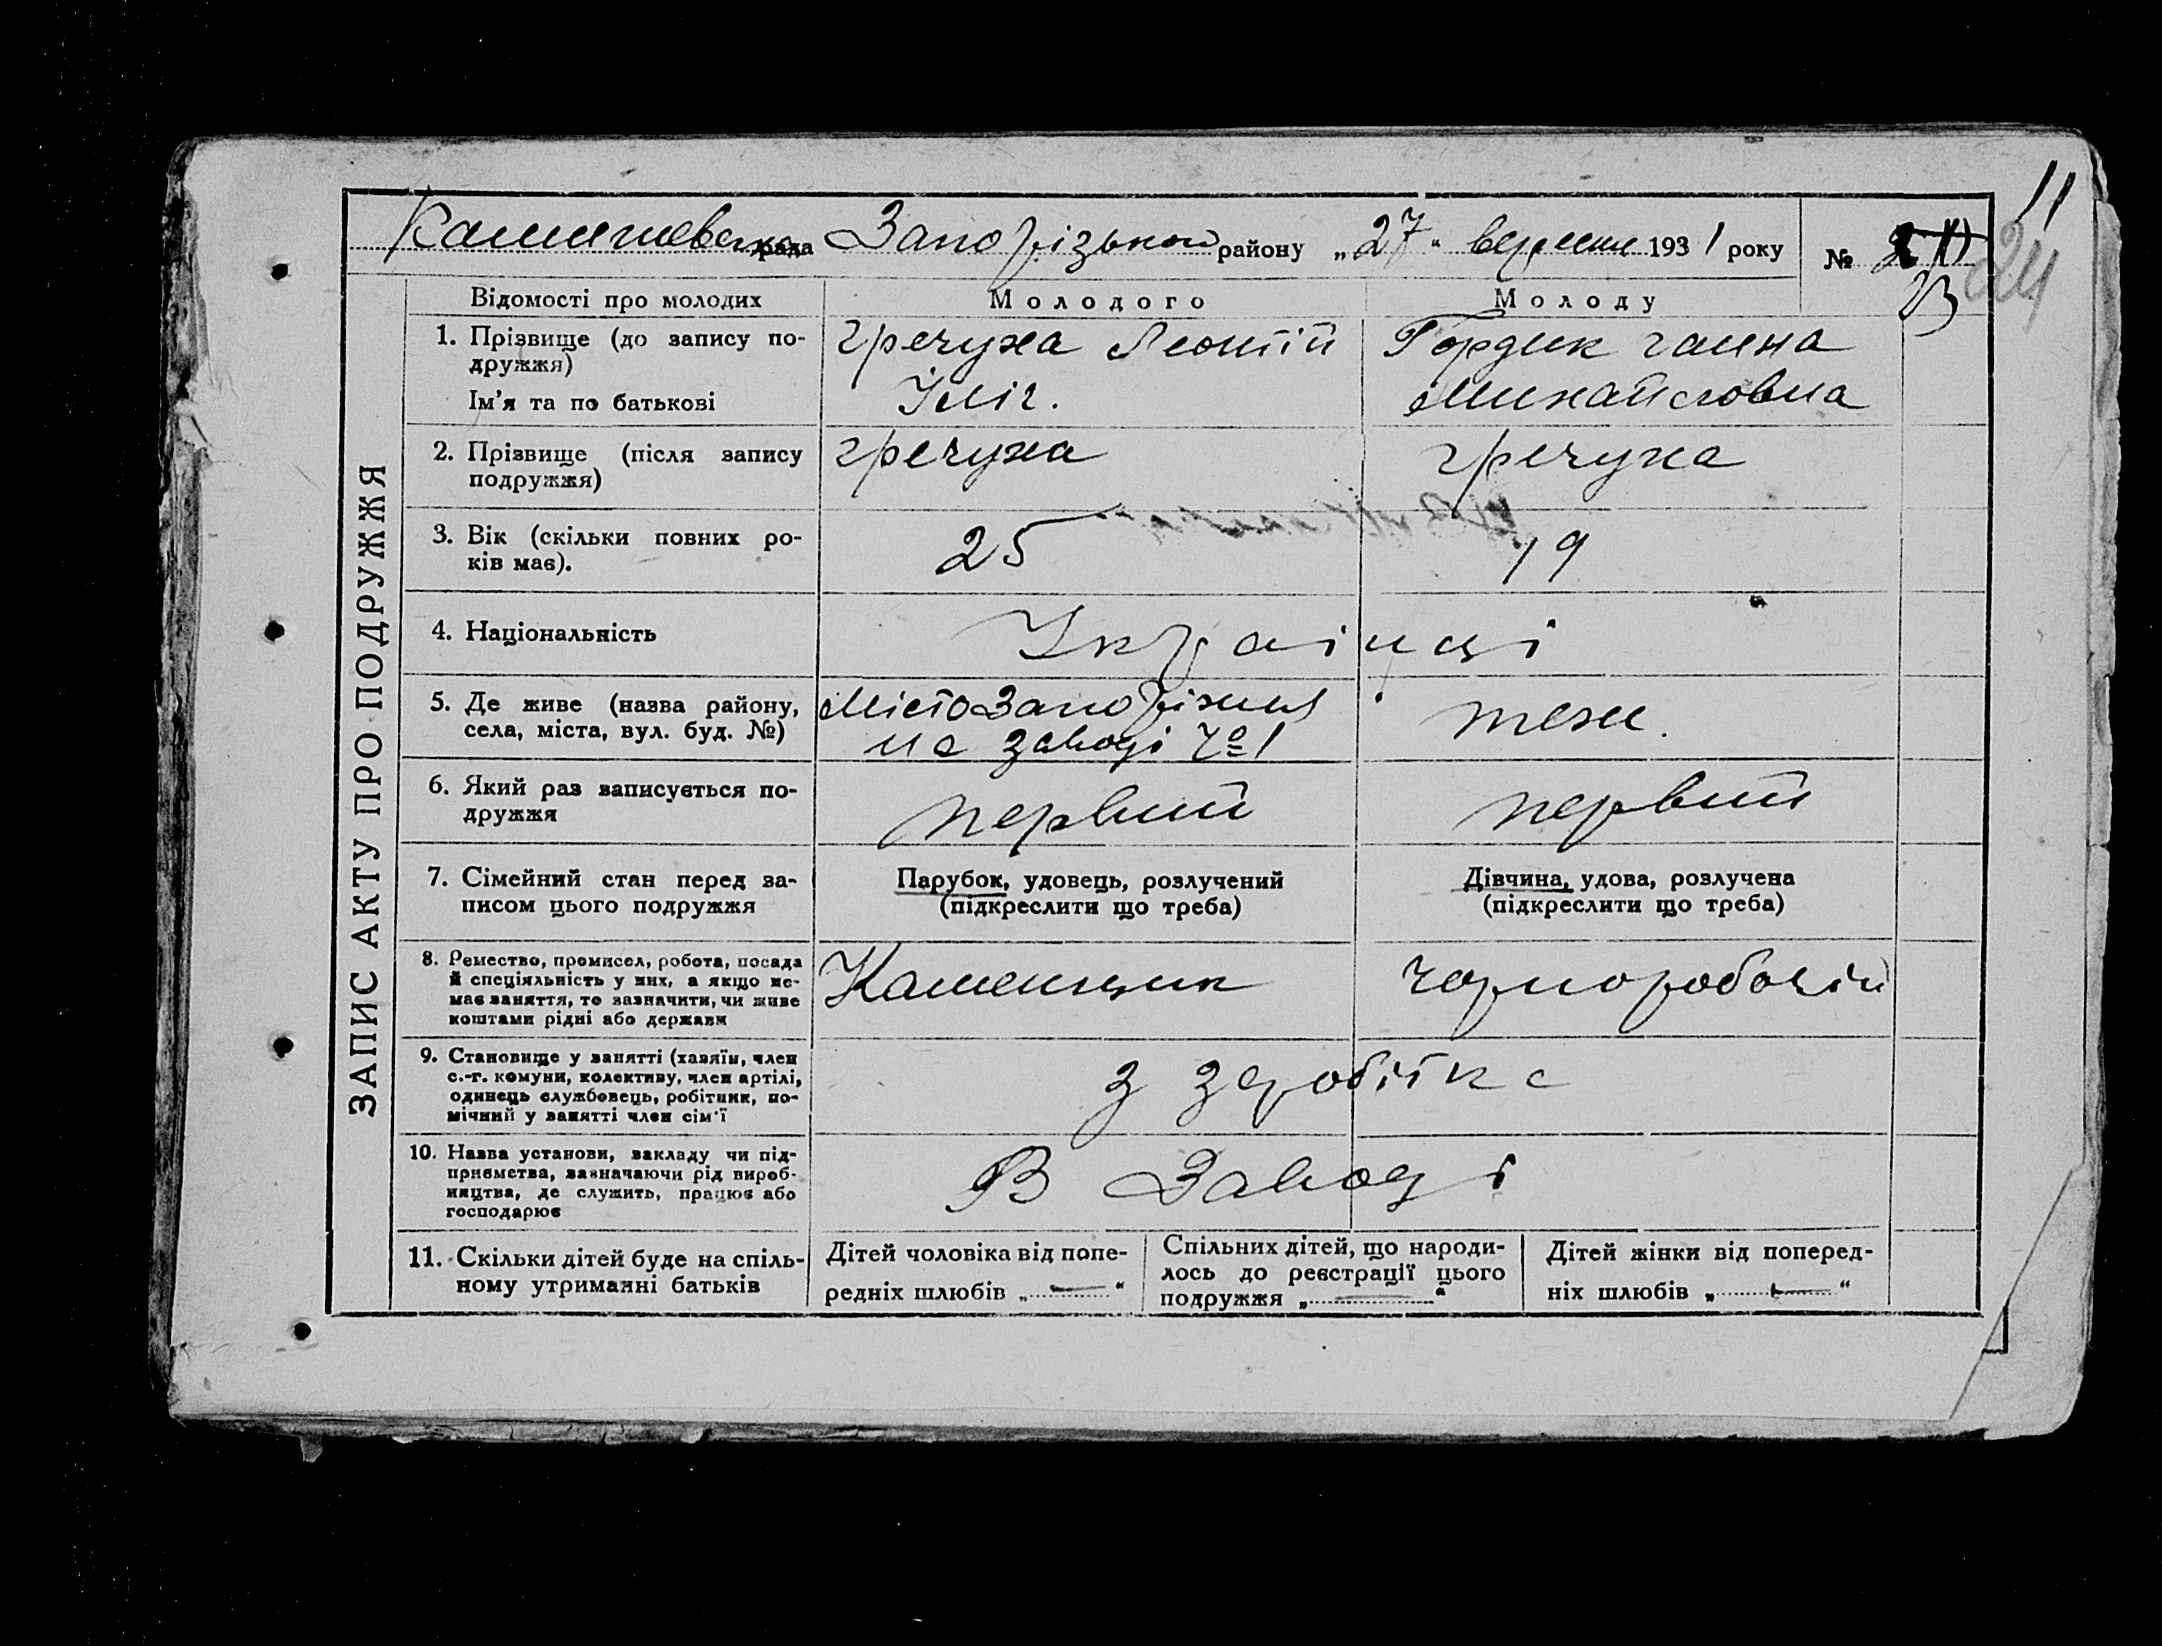 11
Камишеваська рада Запорізького району „27“ вересня 1931 року №
23
24
ЗАПИС АКТУ ПРО ПОДРУЖЖЯ
Відомості про молодих Молодого Молоду
1. Прізвище (до запису по-
дружжя)
Ім'я та по батькові
гречуха Леонтій
Іліч.
Гордик ганна
Михайловна
2. Прізвище (після запису
подружжя)
гречуха
гречуха
3. Вік (скільки повних ро-
ків має).
25
19
4. Національність
Українці
5. Де живе (назва району,
села, міста, вул. буд. №)
Місто Запоріжжя
на заводі №1
теж.
6. Який раз записується по-
дружжя
первий
первий
7. Сімейний стан перед за-
писом цього подружжя
Парубок, удовець, розлучений
(підкреслити що треба)
Дівчина, удова, розлучена
(підкреслити що треба)
8. Ремество, промисел, робота, посада
й спеціяльність у них, а якщо не-
має заняття, то зазначити, чи живе
коштами рідні або держави
Каменщик
чорноробочій
9. Становище у занятті (хазяїн, член
с.-г. комуни, колективу, член артілі,
одинець службовець, робітник, по-
мічний у занятті член сім'ї
з заробітка
10. Назва установи, закладу чи під-
приємства, зазначаючи рід вироб-
ництва, де служить, працює або
господарює
В Заводі
11. Скільки дітей буде на спіль-
ному утриманні батьків
Дітей чоловіка від попе-
редніх шлюбів „—“
Спільних дітей, що народи-
лось до реєстрації цього
подружжя „—“
Дітей жінки від поперед-
ніх шлюбів „—“